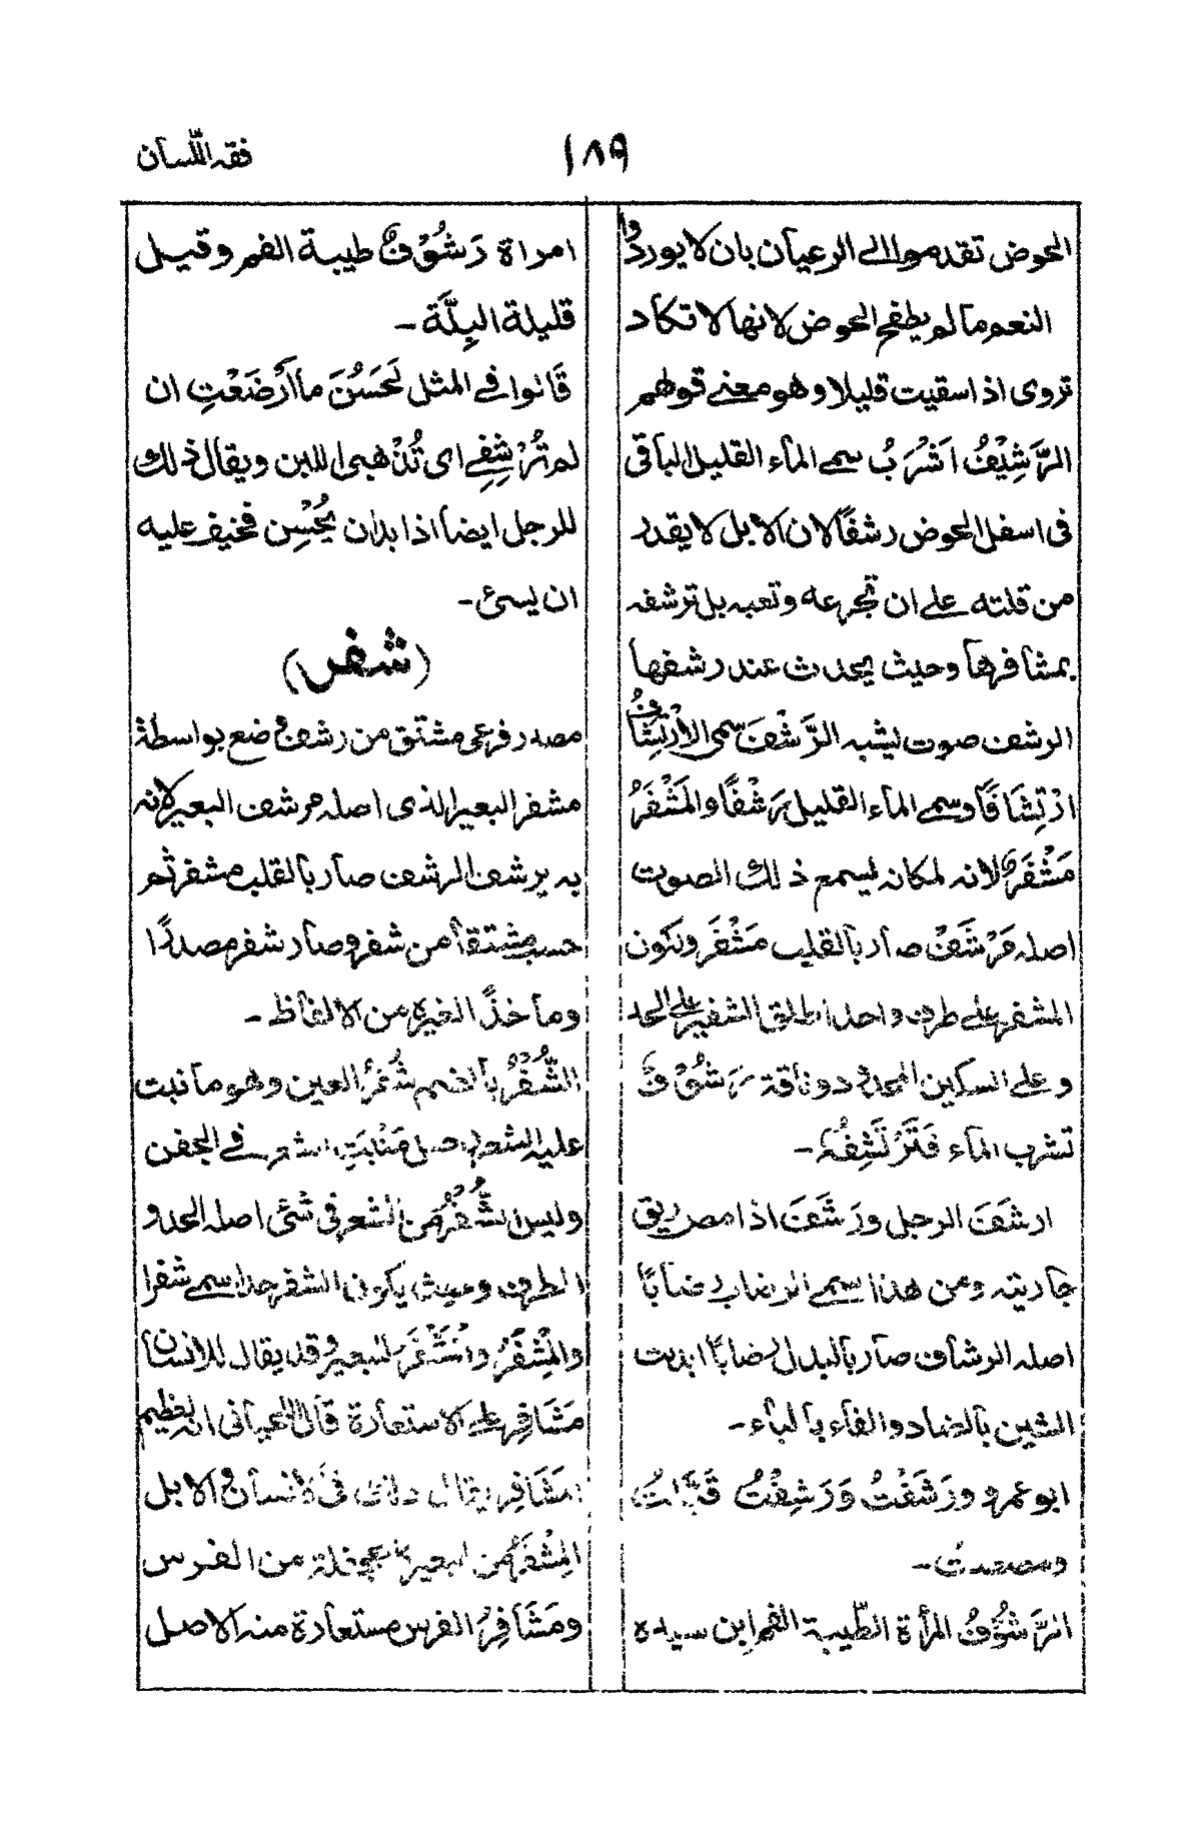 فقہ اللّسان
١٨٩
الحوض تقدموا الى الرعيان بان لا يوردوا
النعم ما لم يطفح الحوض لانها لا تكاد
تروى اذا سقيت قليلا وهو معنے قولهم
الرَّشِيْفُ اَشْرَبُ سمے الماء القليل الباقى
فى اسفل الحوض رشفًا لان الابل لا يقدر
من قلته علے ان تجرعه وتعبه بل ترشفه
بمشافرها وحيث يحدث عند رشفها
الرشف صوت ليشبه الرَّشْفَ سمى الاِرْتِشَافُ
ارْتِشَافًا وسمے الماء القليل رَشْفًا والمَشْفَرُ
مَشْفَرًا لانه لمكانه ليسمع ذلك الصوت
اصله مَرْشَفْ صار بالقلب مَشْفَر ويكون
المشفر علے طرف واحد اطلق الشفير علے الحد
وعلے السكين المحدود وناقة رَشُوْفٌ
تشرب الماء فَتَرْتَشِفُهُ -
ارشَفَ الرجل ورَشَفَ اذا مص ريق
جاريته ومن هذا سمے الرضاب رضابًا
اصله الرشاف صار بالبدل رضابًا ابدلت
الشين بالضاد والفاء بالباء -
ابو عمرو ورَشَفْتُ وَرَشِفْتُ قَبَّلتُ
ومصصت -
الرَّشُوْفُ المرأة الطَّيبة الفم ابن سيده
امراة رَشُوْفٌ طيبة الفم وقيل
قليلة البِلَّة -
قَالوا فے المثل لَحَسُنَ ما اَرْضَعْتِ ان
لم تُرْشِفِے اى تُذْهبى اللبن ويقال ذلك
للرجل ايضا اذا بدا ان يُحْسِن فخيف عليه
ان يسئ -
(شفر)
مصدر فرعى مشتق من رشف وضع بواسطة
مشفر البعير الذى اصله مرشف البعير لانه
به يرشف الرشف صار بالقلب مشفر ثم
حسب مشتقا من شفر وصار شفر مصدرًا
وماخذًا لغيره من الالفاظ -
الشُّفْرُ بالضم شُفرُ العين وهو ما نبت
عليه الشعر اصل مَنْبَتِ الشعر فے الجفن
وليس الشُّفْرُ من الشعر فى شئ اصله الحد و
الطرف وحيث يكون الشفر حدا سمے شفرا
والمِشْفَرُ والمَشْفَرُ للبعير وقد يقال للانسان
مَشَافِر علے الاستعارة قال اللحيانى انه لعظيم
المَشَافِر يقال ذلك فى الانسان والابل
المِشْفَرُ من البعير كالجحفلة من الفرس
ومَشَافِرُ الفرس مستعارة منه الاصل